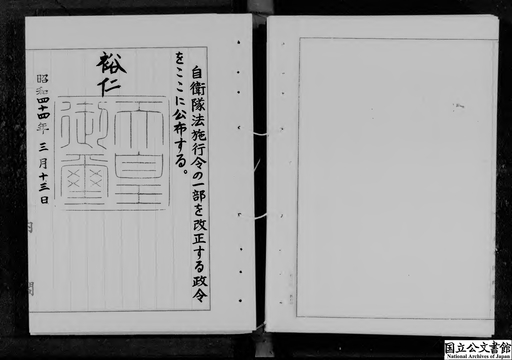 自衛隊法施行令の一部を改正する政令
をここに公布する。
裕仁
天皇
御璽
昭和四十四年三月十三日
内閣
国立公文書館
National Archives of Japan